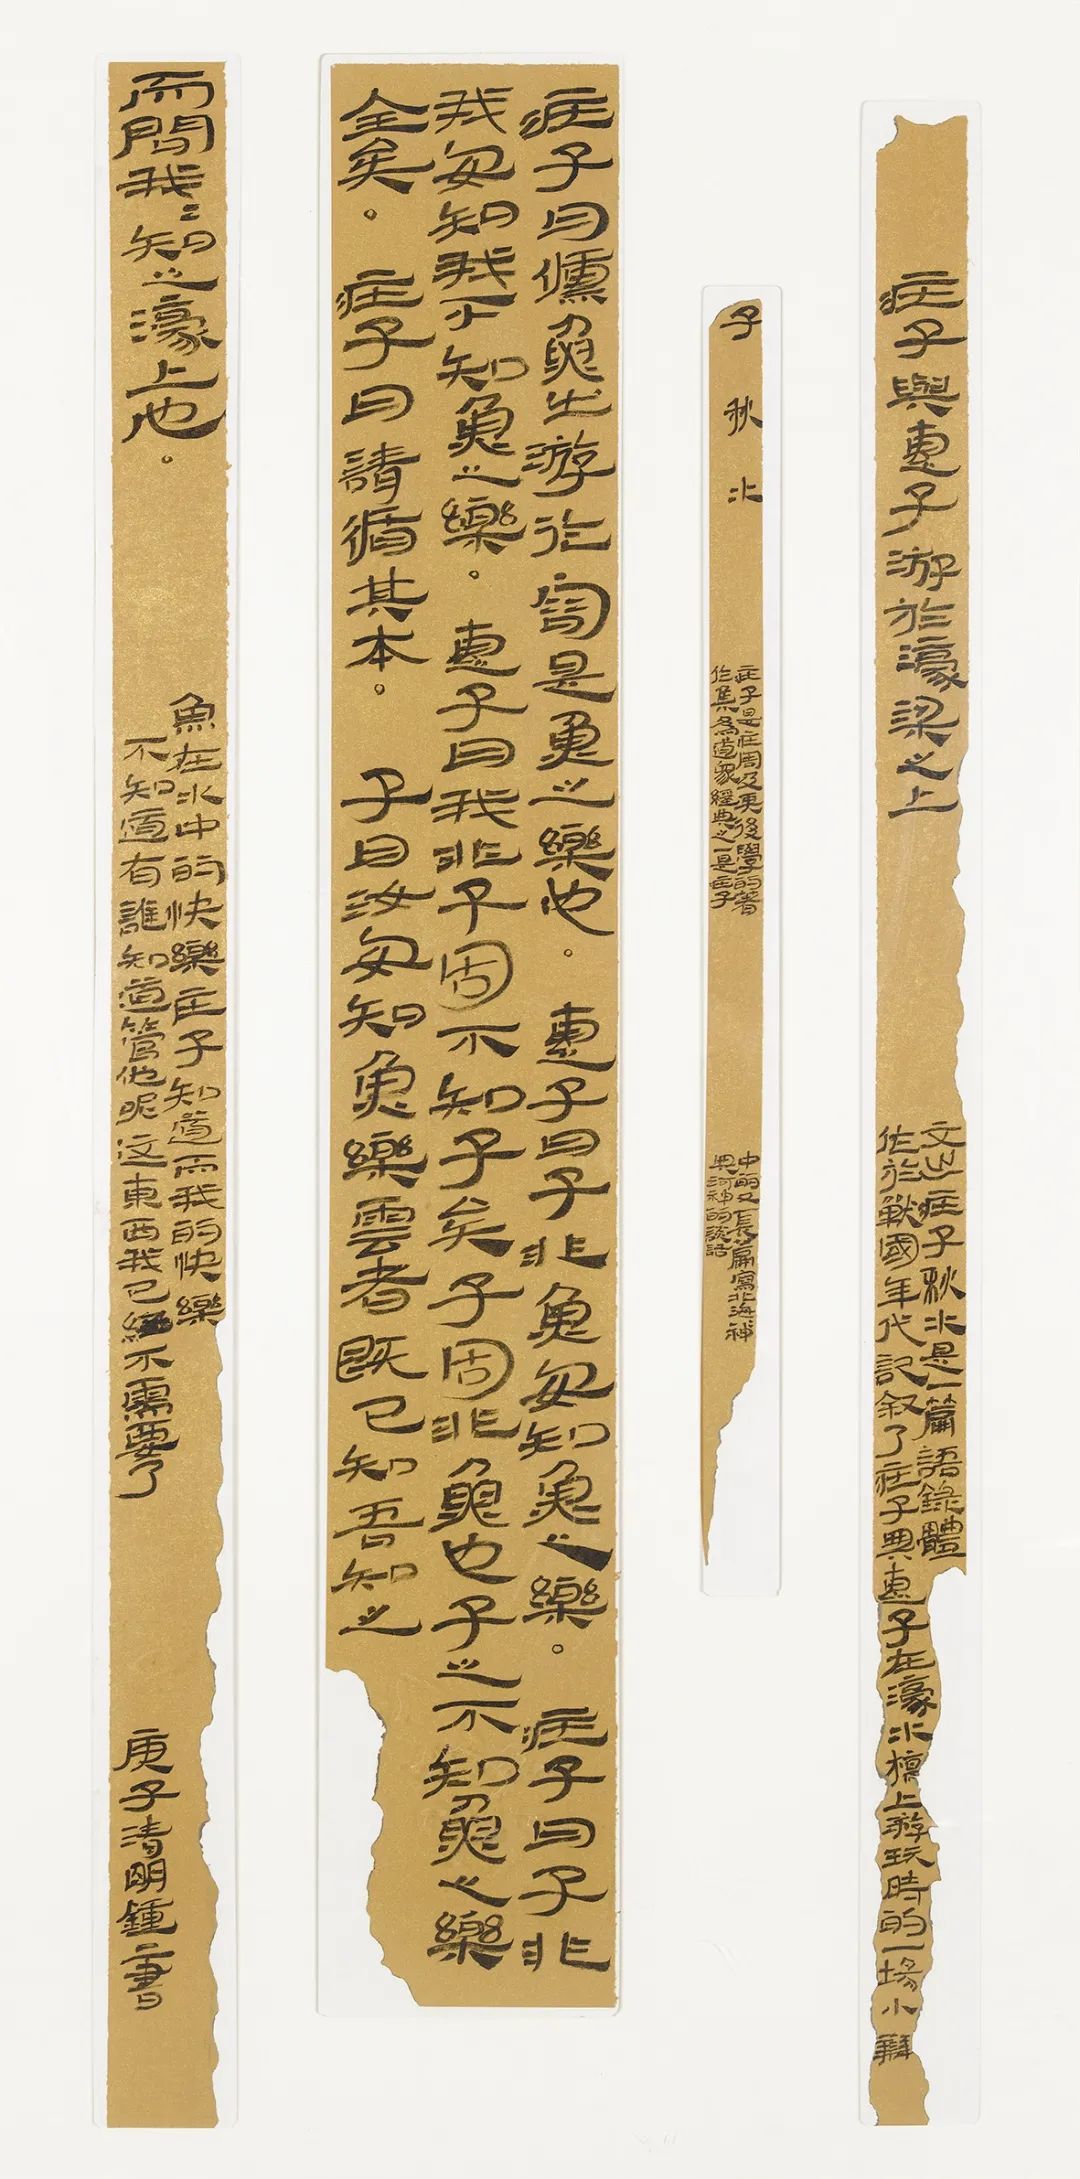 庄子與惠子游於濠梁之上
文出庄子秋水是一篇語錄體
作於戰國年代記敘了庄子與惠子在濠水橋上游玩時的一場小辯
子 秋 水
庄子是庄周及其後學的著
作集為道家經典之一是庄子
中的又一長篇寫北海神
與河神的談話
庄子曰儵魚出游從容是魚之樂也。惠子曰子非魚安知魚之樂。庄子曰子非
我安知我不知魚之樂。惠子曰我非子固不知子矣子固非魚也子之不知魚之樂
全矣。庄子曰請循其本。子曰汝安知魚樂雲者既已知吾知之
而問我=知之濠上也。
魚在水中的快樂庄子知道而我的快樂
不知道有誰知道管他呢這東西我已經不需要了
庚子清明鍾書